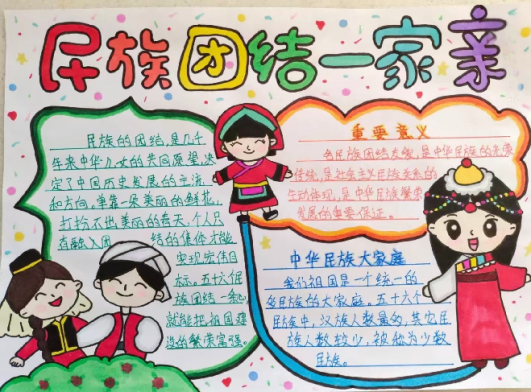 民族团结一家亲
民族的团结,是几千
年来中华儿女的共同愿望,决
定了中国历史发展的主流
和方向,单靠一朵美丽的鲜花,
打扮不出美丽的春天,个人只
有融入团 结的集体才能
实现宏伟目
标。五十六个民
族团结一心
就能把祖国建
设的繁荣富强。
重要意义
各民族团结友爱,是中华民族的光荣
传统,是社会主义民族关系的
生动体现,是中华民族繁荣
发展的重要保证。
中华民族大家庭
我们祖国是一个统一的
多民族的大家庭。五十六个
民族中,汉族人数最多,其它民
族人数较少,被称为少数
民族。